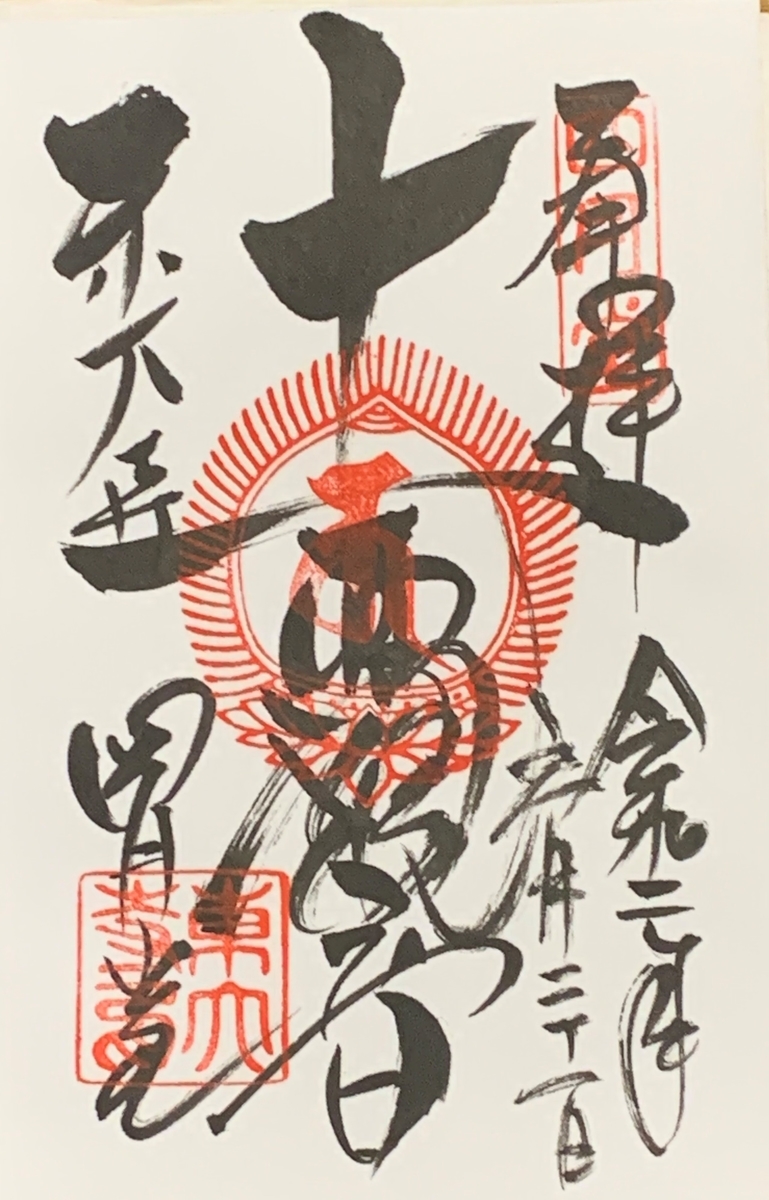 奉拝
令和二年
六月二十一日
十一面観音
東大寺
四月堂
四月堂